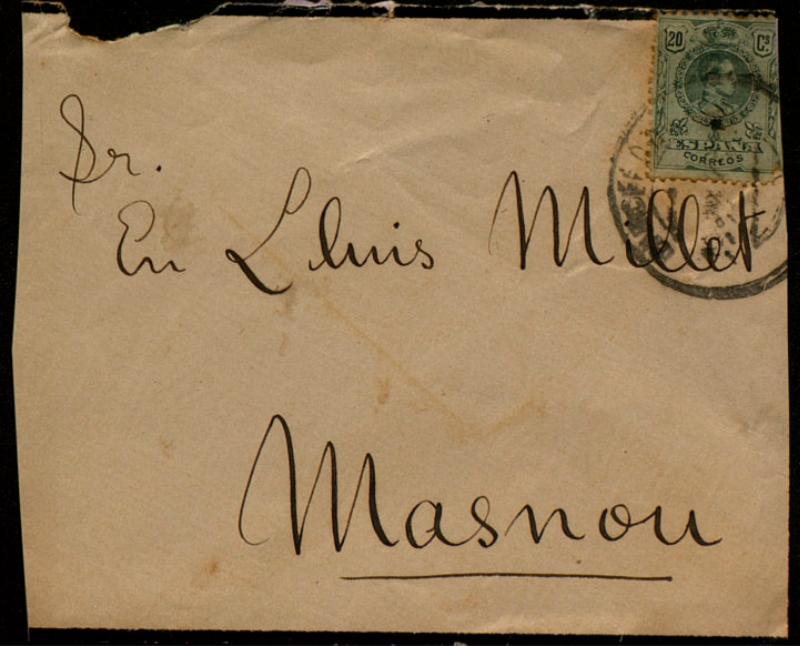 20 Cs
ESPAÑA
CORREOS
Sr.
En Lluis Millet
Masnou